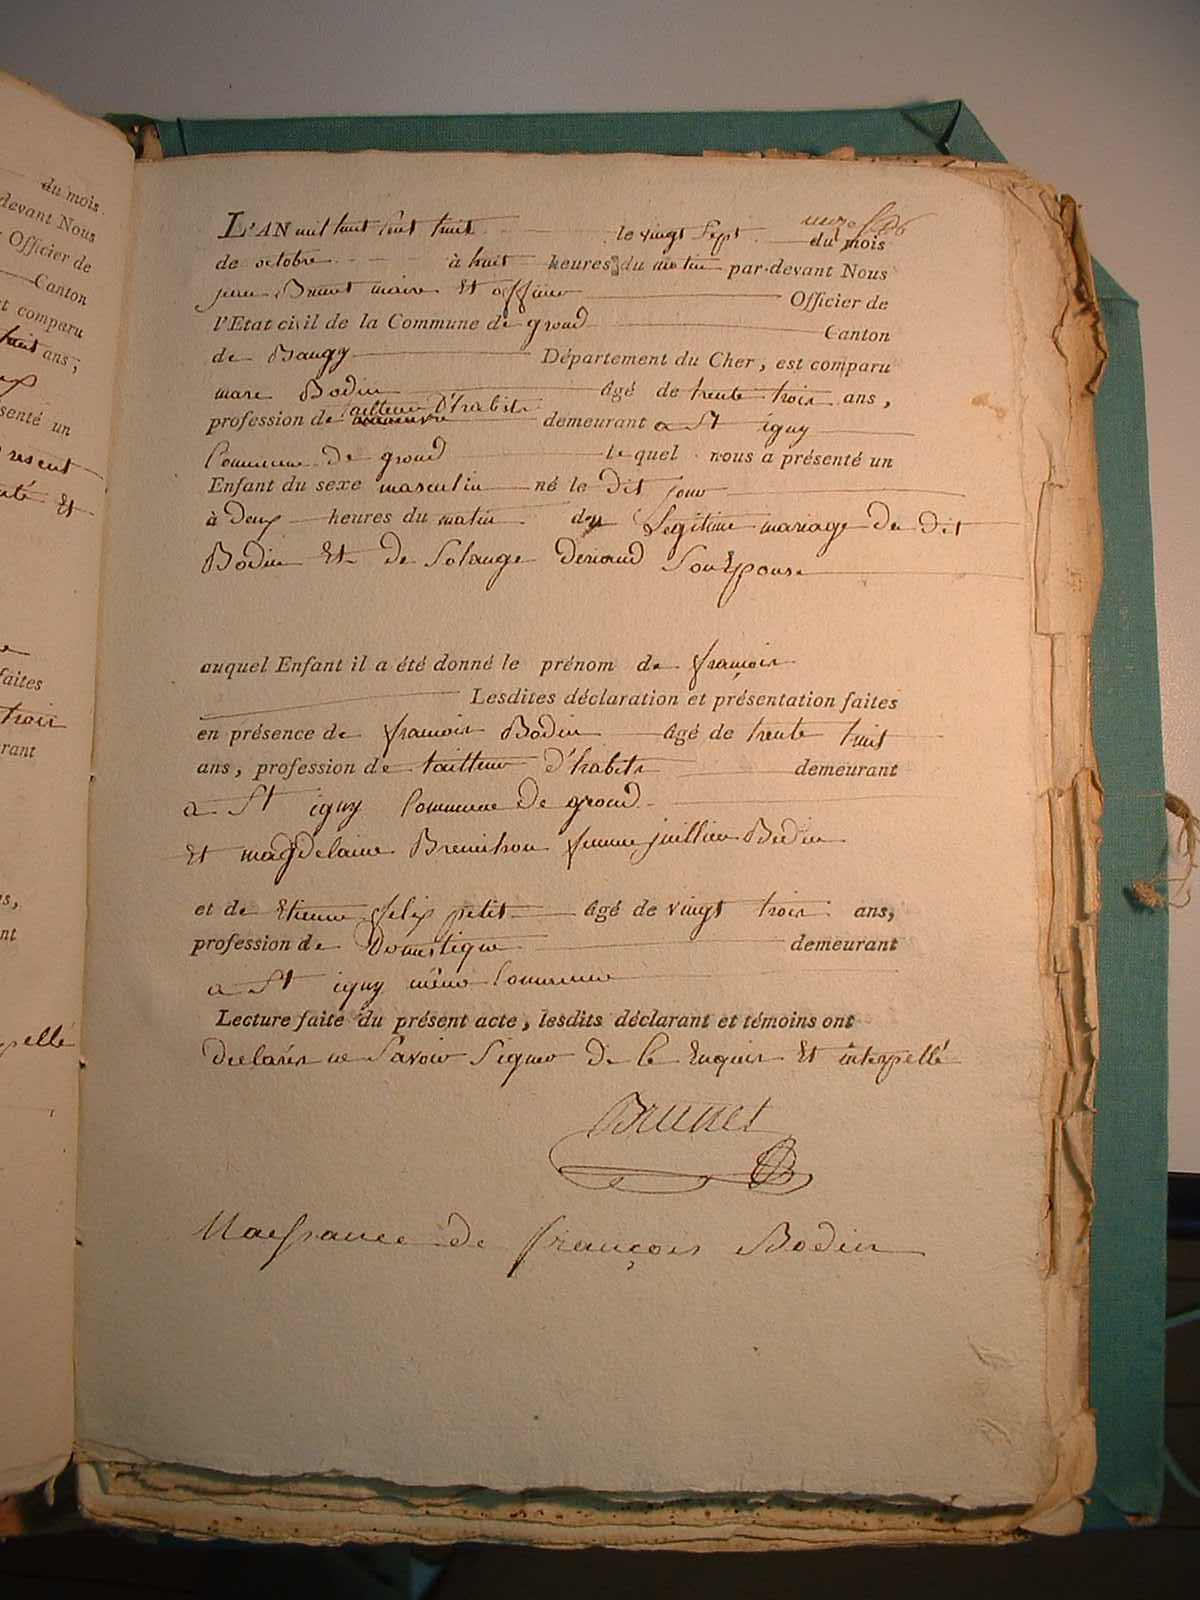 du mois
devant Nous
Officier de
Canton
et comparu
huit ans;
senté un
faites
trois
rant
s,
nt
pellé
L'AN mil huit cent huit le vingt sept du mois
de octobre à huit heures du matin par-devant Nous
jean Brunet maire Et officier Officier de
l'Etat civil de la Commune de groud Canton
de Baugy Département du Cher, est comparu
marc Bodin âgé de trente trois ans,
profession de tailleur D'habits demeurant a St igny
Commune de groud lequel nous a présenté un
Enfant du sexe masculin né le Dit jour
à Deux heures du matin du Legitime mariage du dit
Bodin Et de Solange Deriaud Son Epouse
auquel Enfant il a été donné le prénom de françois
Lesdites déclaration et présentation faites
en présence de françois Bodin âgé de trente huit
ans, profession de tailleur D'habits demeurant
a St igny Commune De groud
Et magdelaine femme jullien Bodin
et de Etienne felix petit âgé de vingt trois ans,
profession de Domestique demeurant
a St igny même Commune
Lecture faite du présent acte, lesdits déclarant et témoins ont
declarés ne Savoir Signer De ce Enquis Et interpellé
Brunet
Naissance de françois Bodin